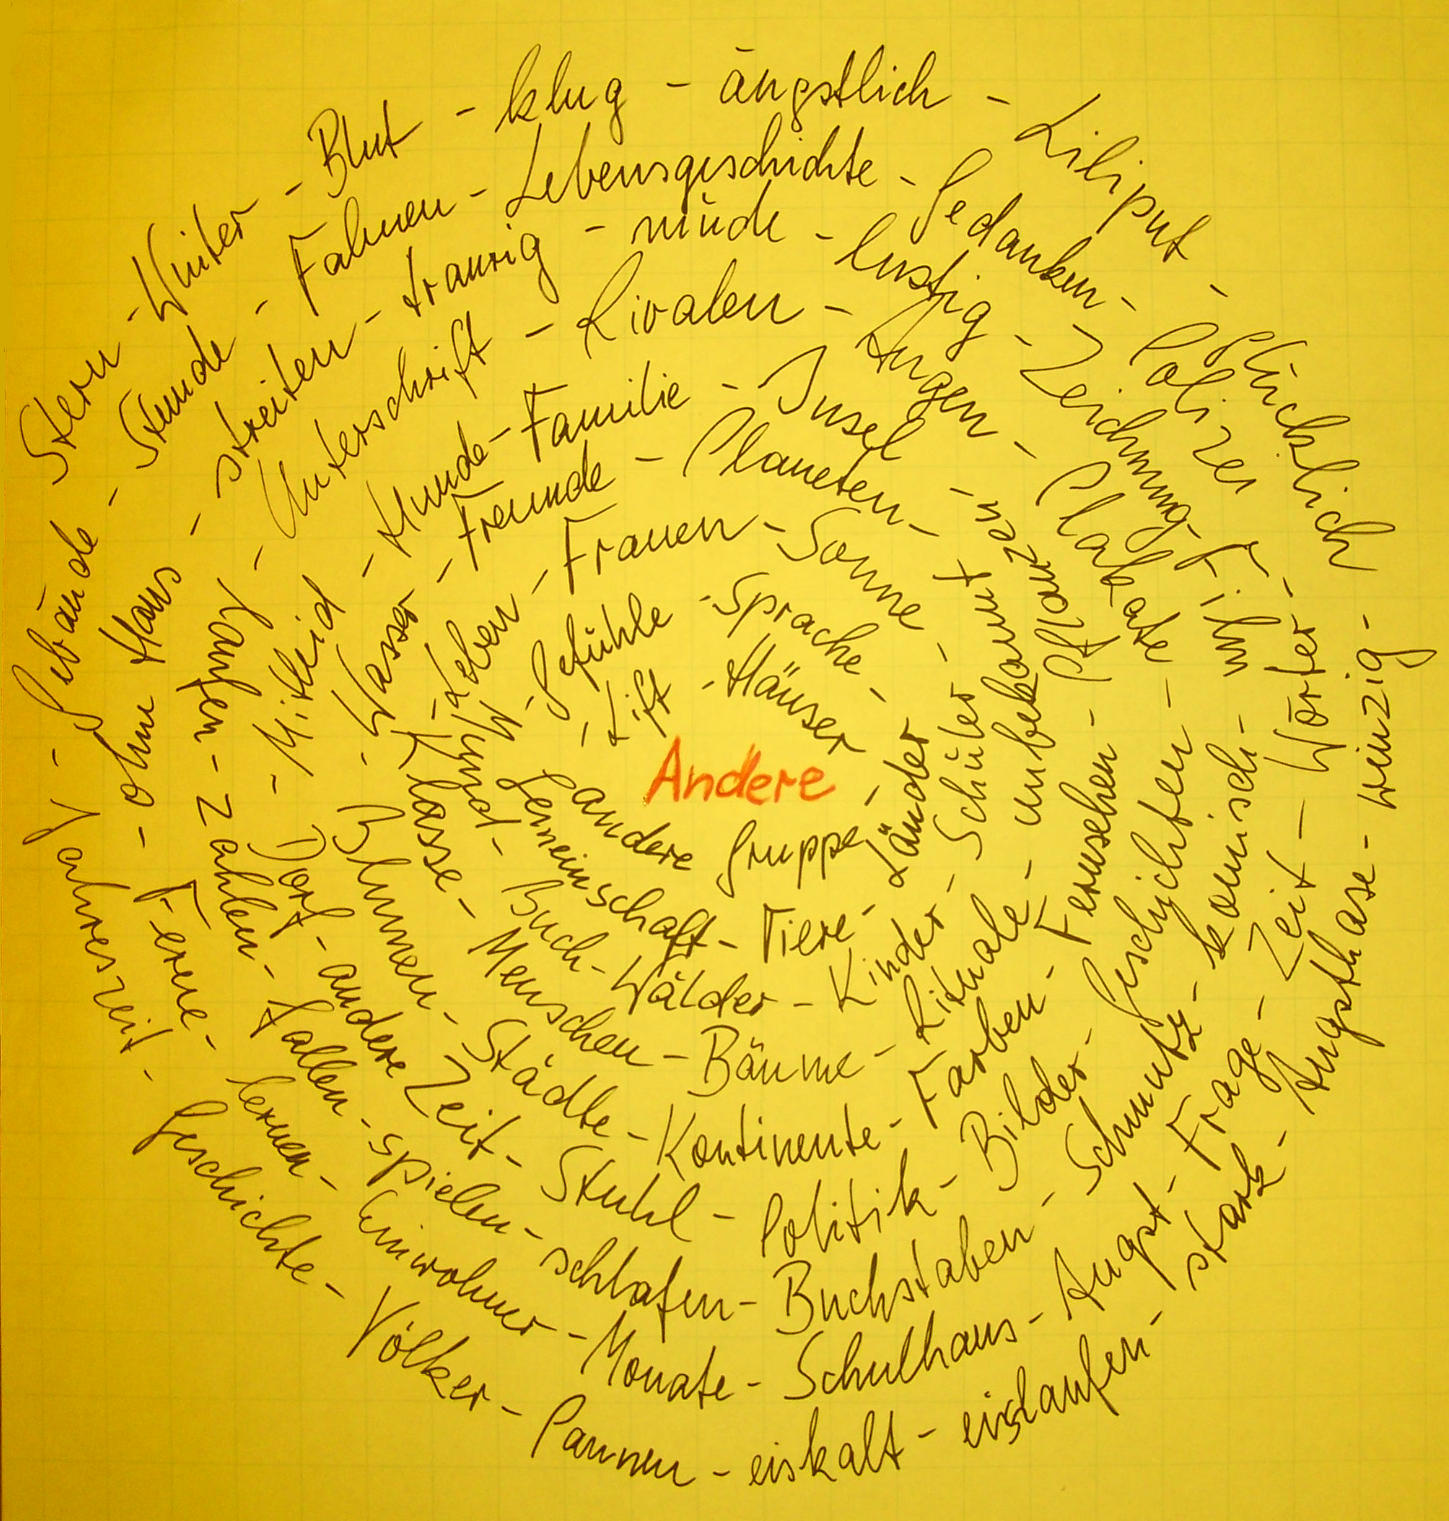 Stern - Winter - Blut - klug - ängstlich - Liliput - glücklich
- Gebäude - Stunde - Fahnen - Lebensgeschichte - Gedanken - Polizei -
- ohne Haus - streiten - traurig - müde - lustig - Zeichnung - Film
laufen - Unterschrift - Rivalen - Augen - Plakate -
- Mitleid - Hunde - Familie - Insel -
- Wasser - Freunde - Planeten -
- Leben - Frauen - Sonne -
- Gefühle - Sprache -
- Lift - Häuser
Andere
andere Gruppe -
Gemeinschaft - Tiere - Länder
- Buch - Wälder - Kinder - Schüler -
Klasse - Menschen - Bäume - Rituale - unbekannt - Pflanzen -
Blumen - Städte - Kontinente - Farben - Fernsehen -
Dorf - andere Zeit - Stuhl - Politik - Bilder - Geschichten -
- Zahlen - fallen - spielen - schlafen - Buchstaben - Schmutz - komisch -
Ferne - lernen - Einwohner - Monate - Schulhaus - Angst - Frage - Zeit - Wörter -
Jahreszeit - Geschichte - Völker - Pannen - eiskalt - eislaufen - stark - Angsthase - winzig -